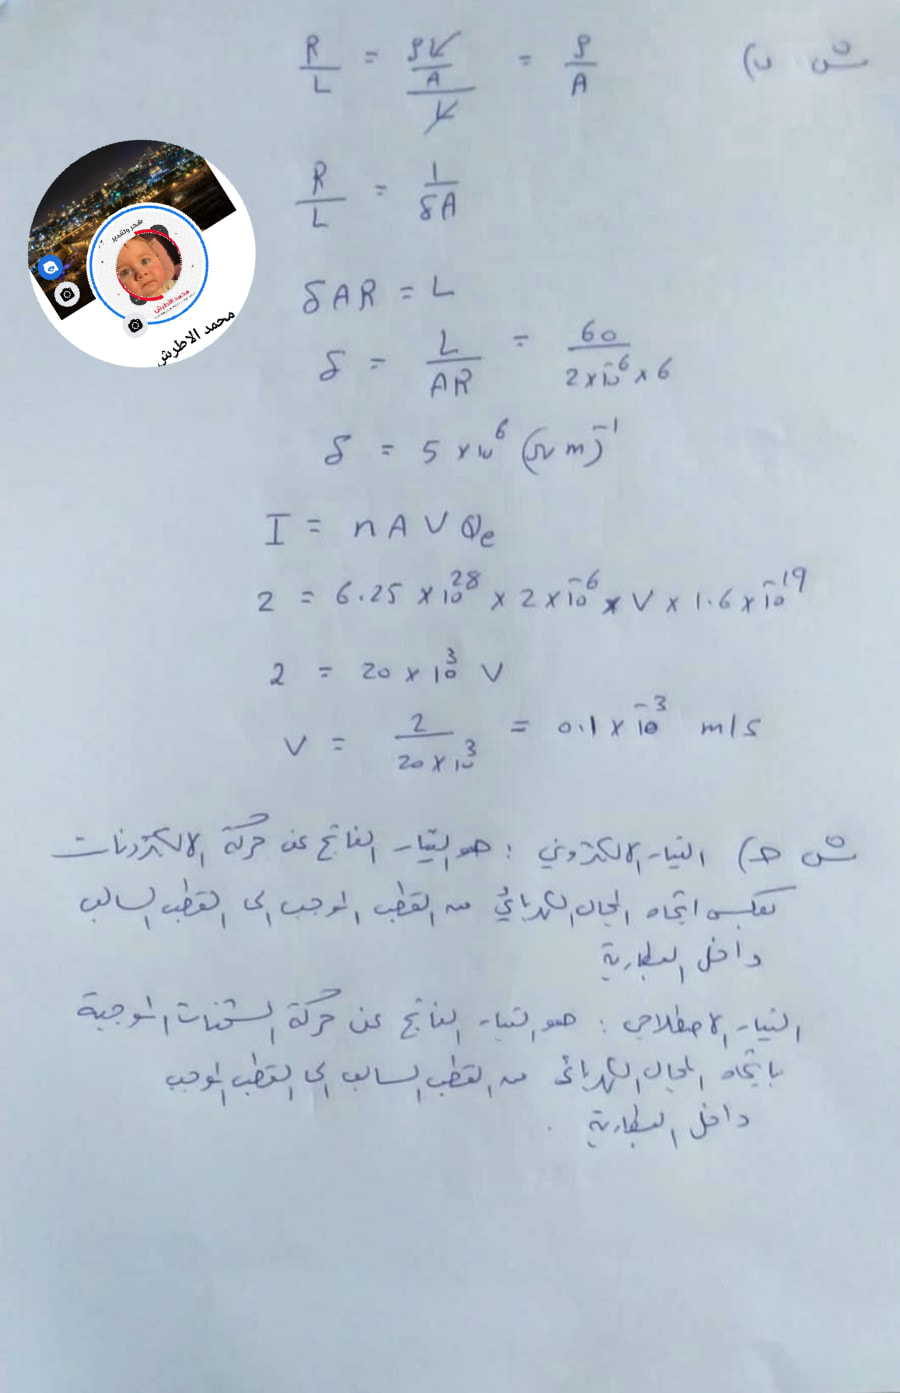 ش ب)
R/L = (ρL/A)/L = ρ/A
R/L = 1/δA
δAR = L
δ = L/AR = 60/(2×10⁻⁶ × 6)
δ = 5 × 10⁶ (Ω m)⁻¹
I = n A V Qe
2 = 6.25 × 10²⁸ × 2 × 10⁻⁶ × V × 1.6 × 10⁻¹⁹
2 = 20 × 10³ V
V = 2/(20 × 10³) = 0.1 × 10⁻³ m/s
ش ج) التيار الالكتروني : هو التيار الناتج عن حركة الالكترونات
بعكس اتجاه المجال الكهربائي من القطب الموجب الى القطب السالب
داخل البطارية
التيار الاصطلاحي : هو التيار الناتج عن حركة الشحنات الموجبة
باتجاه المجال الكهربائي من القطب السالب الى القطب الموجب
داخل البطارية .
محمد الاطرش